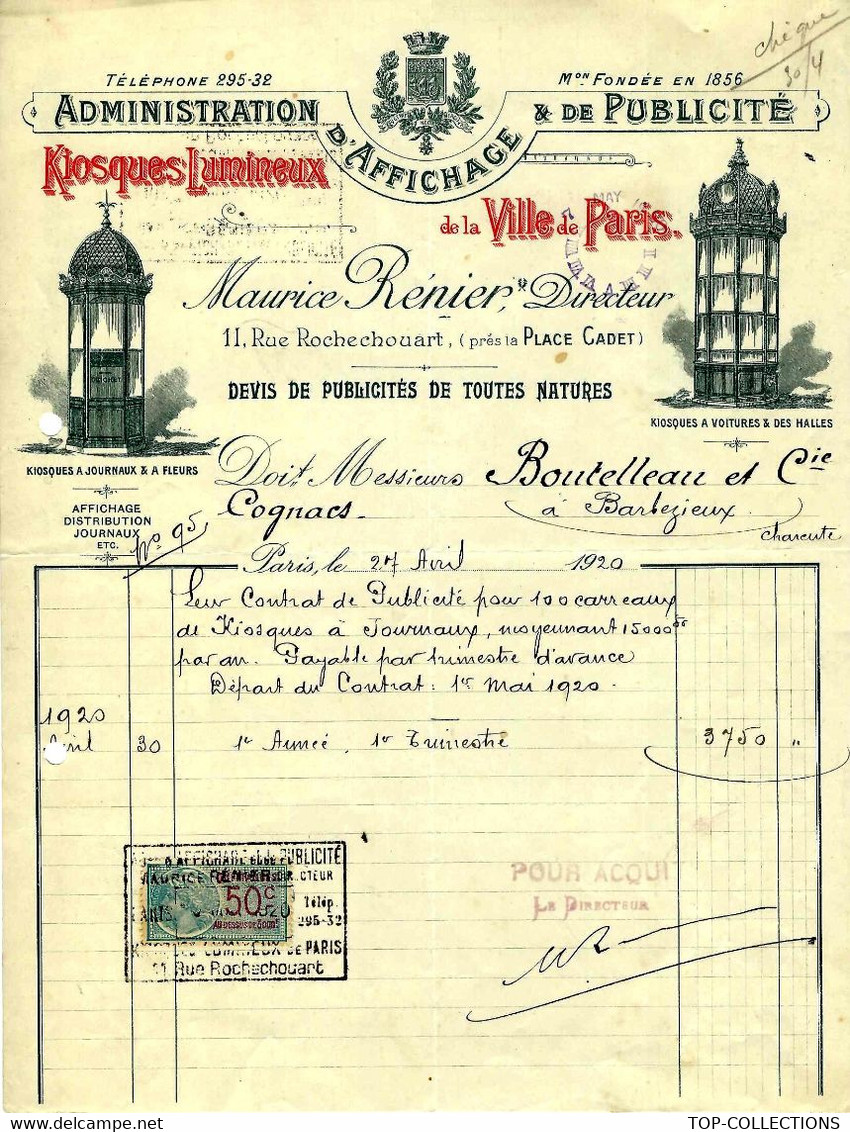 chèque
30/4
TÉLÉPHONE 295-32
MON FONDÉE EN 1856
ADMINISTRATION D'AFFICHAGE & DE PUBLICITÉ
Kiosques Lumineux
de la Ville de Paris.
MAY
Maurice Rénier, Directeur
11, Rue Rochechouart, (près la PLACE CADET)
DEVIS DE PUBLICITÉS DE TOUTES NATURES
KIOSQUES A VOITURES & DES HALLES
KIOSQUES A JOURNAUX & A FLEURS
AFFICHAGE
DISTRIBUTION
JOURNAUX
ETC.
No 95
Doit Messieurs Boutelleau et Cie
Cognacs à Barbezieux
Charente
Paris, le 27 Avril 1920
Leur Contrat de Publicité pour 100 carreaux
de Kiosques à Journaux, moyennant 15000 frs
par an. Payable par trimestre d'avance
Départ du Contrat : 1er Mai 1920.
1920
Avril 30 1e Année, 1er Trimestre 3750 "
D'AFFICHAGE & DE PUBLICITÉ
MAURICE RÉNIER DIRECTEUR
50c
Télép.
295-32
KIOSQUES LUMINEUX DE PARIS
11 Rue Rochechouart
POUR ACQUI
LE DIRECTEUR
TOP-COLLECTIONS